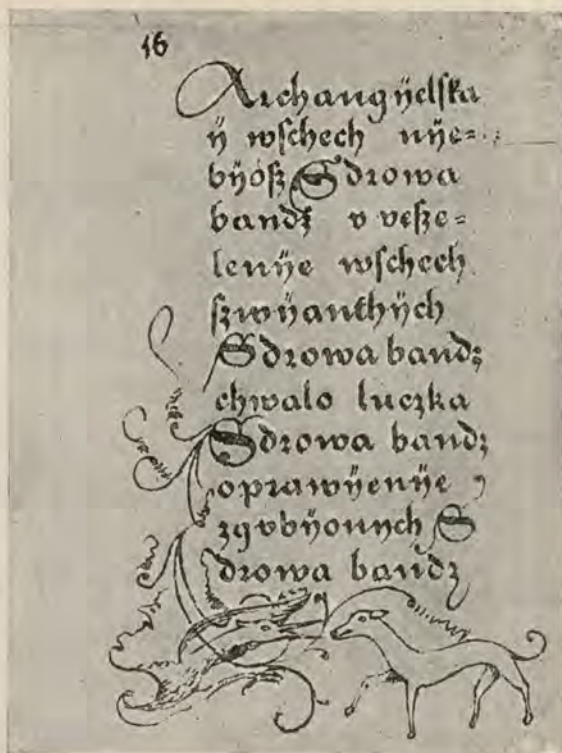 16
Archangÿelſka
ÿ wſchech nÿe=
bÿóſz Sdrowa
bandz v veſze=
lenÿe wſchech
ſzwÿanthÿch
Sdrowa bandz
chwalo luczka
Sdrowa bandz
oprawÿenÿe
zgvbÿonych S
drowa bandz